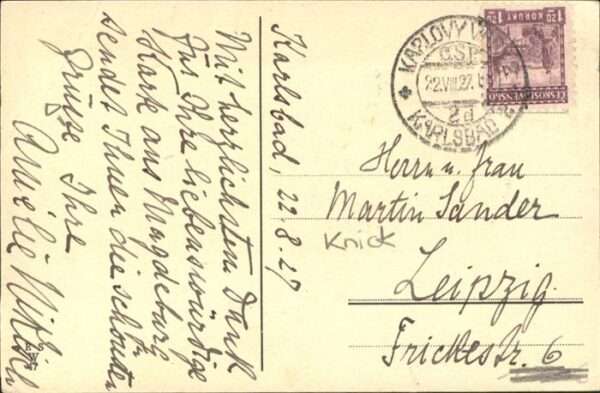 Karlsbad, 22.8.27
Mit herzlichstem Dank
für Ihre liebenswürdige
Karte aus Magdeburg
sendet Ihnen die schönsten
Grüsse Ihre
Amélie Nikisch
KARLOVY VARY
Č.S.P.
22.VIII.27
2d
KARLSBAD 2
1.20 KORUNY
ČESKOSLOVENSKO
Herrn u. Frau
Martin Sander
Knick
Leipzig
Frickestr. 6